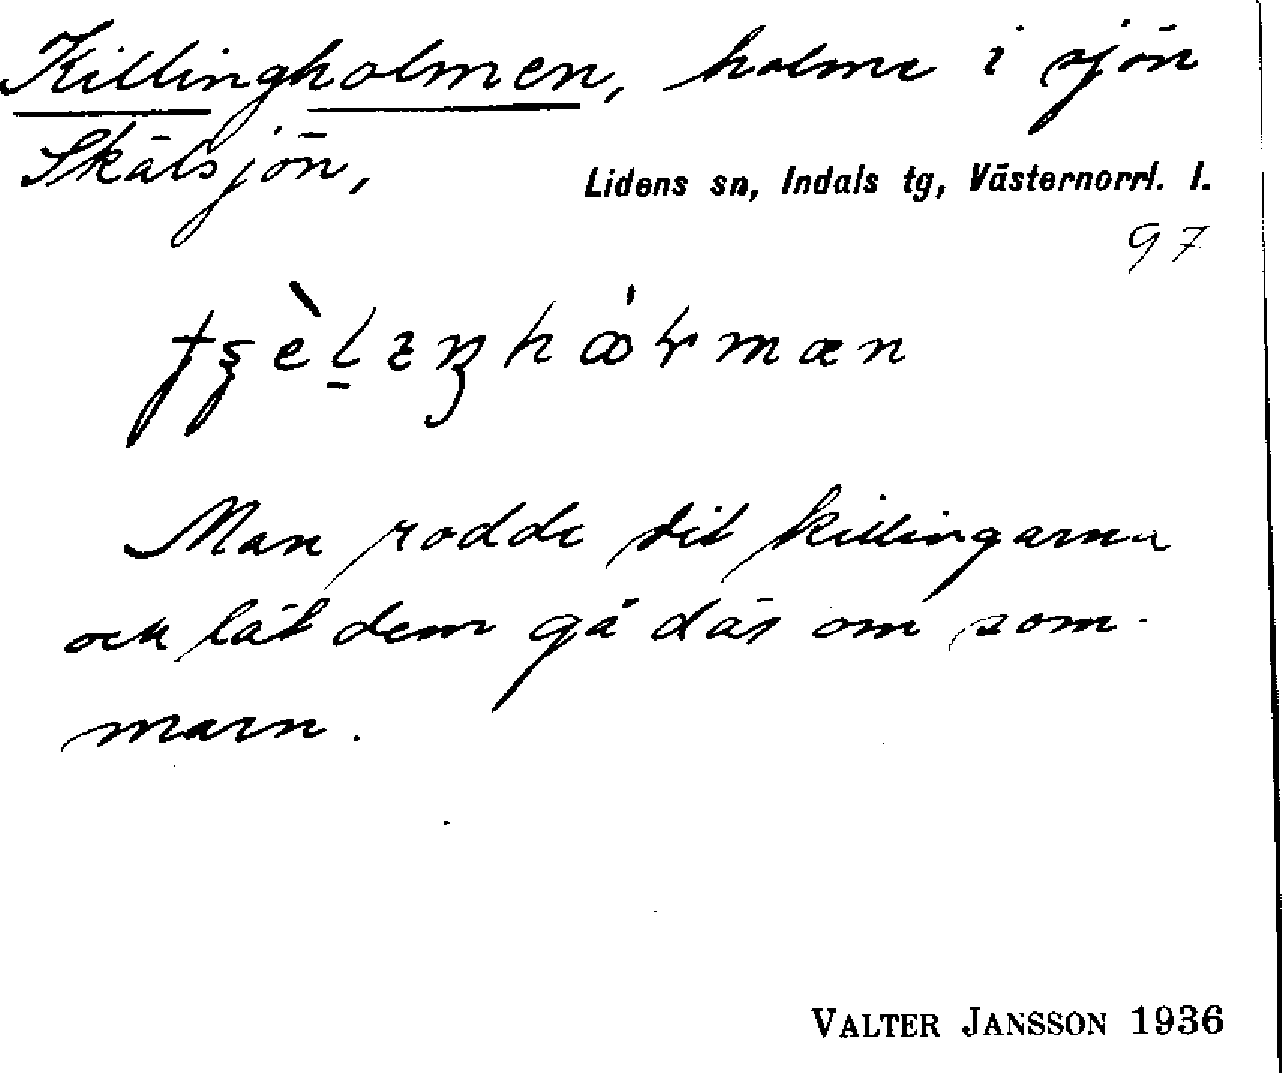 Killingholmen, holme i sjön
Skälsjön,
Lidens sn, Indals tg, Västernorrl. l.
97
Man rodde dit killingarna
och låt dem gå där om som-
marn.
VALTER JANSSON 1936